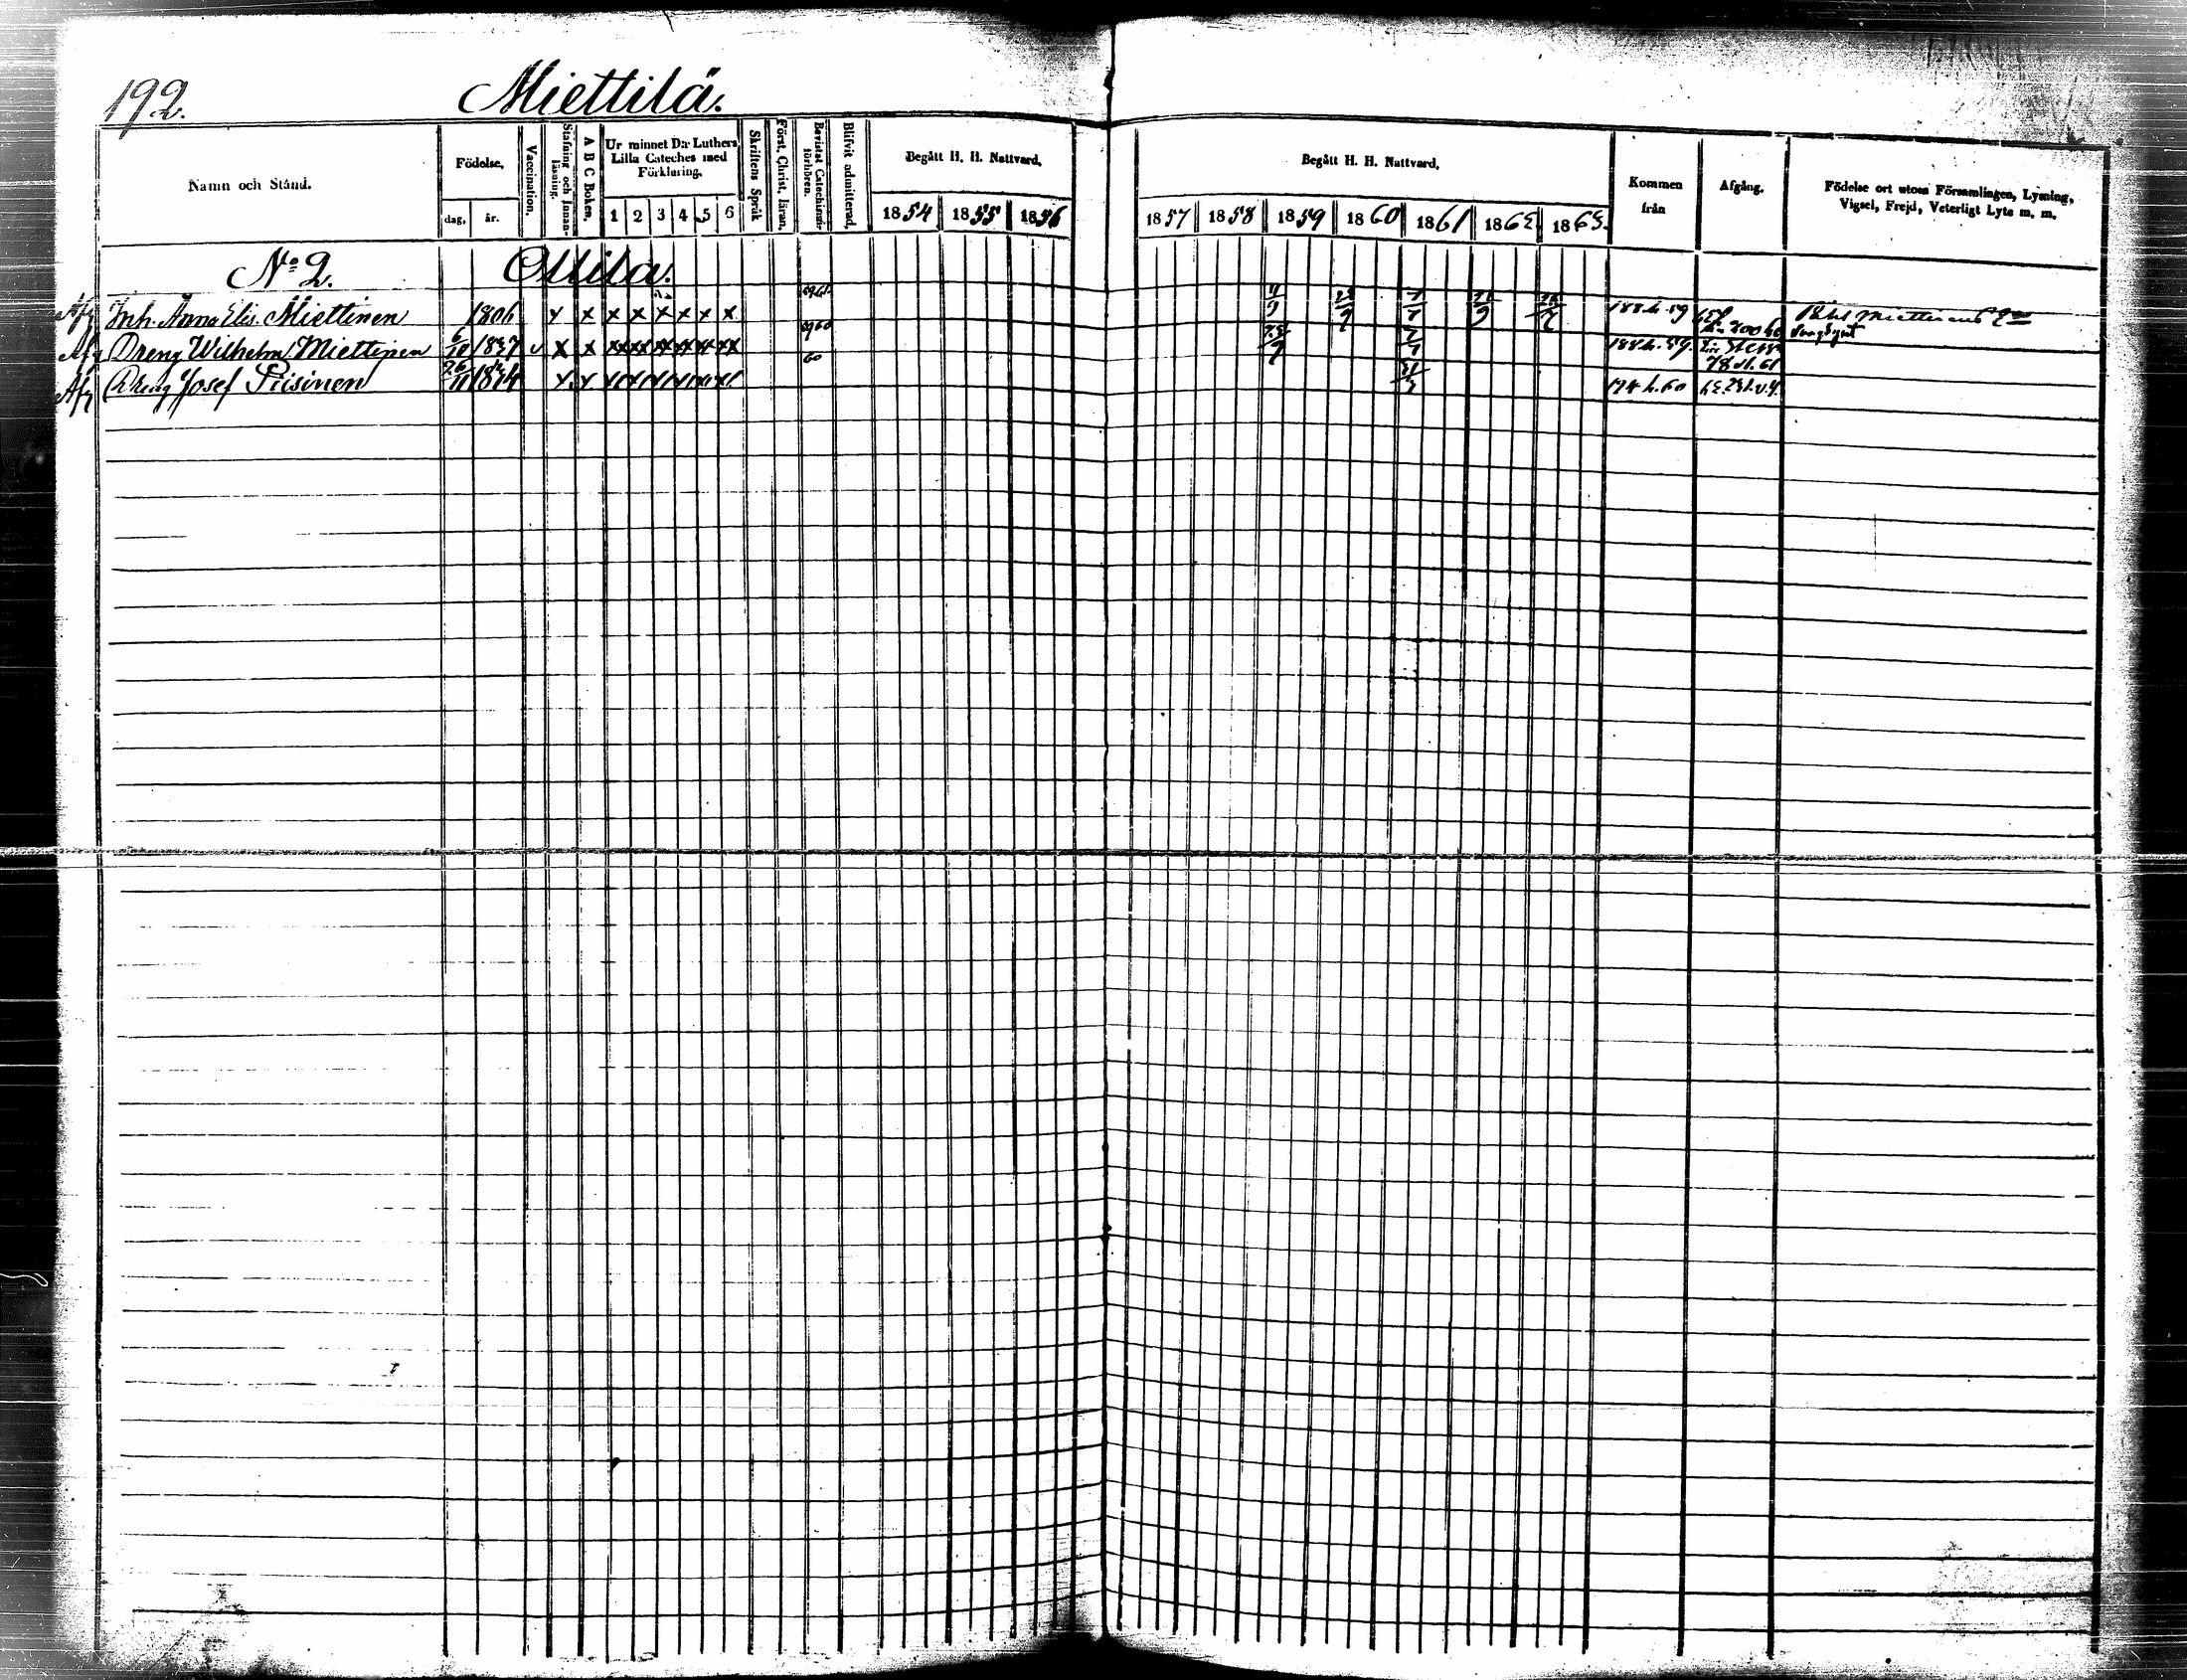 192.
Miettilä.
Namn och Stånd.
Födelse,
dag, år.
Vaccination,
Stafning och Innanläsning.
A B C Boken,
Ur minnet D:r Luthers Lilla Cateches med Förklaring,
1 2 3 4 5 6
Skriftens Språk
Först. Christ. läran,
Bevistat Catechismiförhören.
Blifvit admitterad,
Begått H. H. Nattvard,
1854 1855 1856
Begått H. H. Nattvard,
1857 1858 1859 1860 1861 1862 1863.
Kommen från
Afgång.
Födelse ort utom Församlingen, Lysning, Vigsel, Frejd, Veterligt Lyte m. m.
No 2. Ollila.
Afg Inh. Anna Elis. Miettinen 1806 x x x x x x x x 188 h. 59
Afg Dreng Wilhelm Miettinen 6/10 1837 v x x xx xx xx xx xx xx 59 60 188 h. 59.
78 61
Afg Dreng Josef Piisinen 26/11 x x 60 174 h. 60